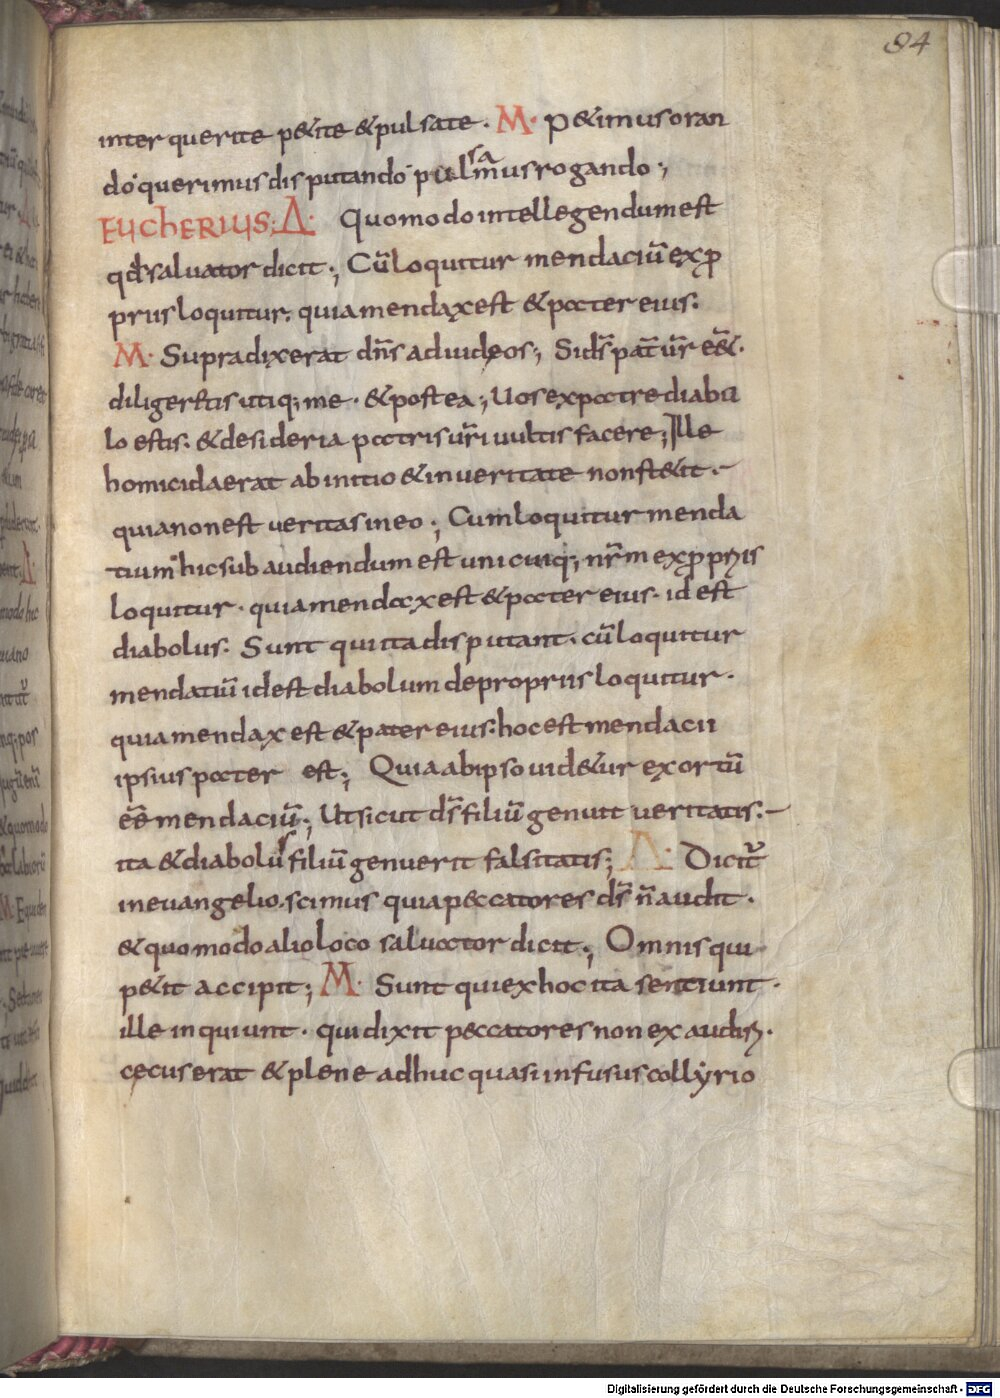 84
inter querite petite & pulsate · M · P&imus oran
do querimus disputando pulsamus rogando ;
EUCHERIUS ; Δ · Quomodo intellegendum est
qđ saluator dicit ; Cū loquitur mendaciū exp̱
priis loquitur . quia mendax est & pater eius :
M · Supra dixerat dn̄s ad iudeos ; Si ds̄ pat̄ ur̄ eē& ·
diligeritis utiq; me · & postea ; Uos ex patre diabu
lo estis : & desideria patris ur̄i uultis facere ; Ille
homicida erat ab initio & in ueritate non st&it · –
quia non est ueritas in eo ; Cum loquitur menda
tium hic subaudiendum est unicuiq; nr̄m ex propriis
loquitur · quia mendax est & pater eius · id est
diabolus · Sunt qui ita disputant · cū loquitur
mendatiū id est diabolum de propriis loquitur ·
quia mendax est & pater eius : hoc est mendacii
ipsius pater est ; Quia ab ipso uid&ur exortū
eē mendaciū ; Ut sicut ds̄ filiū genuit ueritatis : –
ita & diabolus filiū genuerit falsitatis ; Δ · Dicit̄
in euangelio . scimus quia peccatores ds̄ n̄ audit ·
& quomodo alio loco saluator dicit ; Omnis qui
p&it accipit ; M · Sunt qui ex hoc ita sentiunt ·
ille inquiunt · qui dixit peccatores non exaudiri ·
cecus erat & plene adhuc quasi infusus collyrio
Digitalisierung gefördert durch die Deutsche Forschungsgemeinschaft - DFG